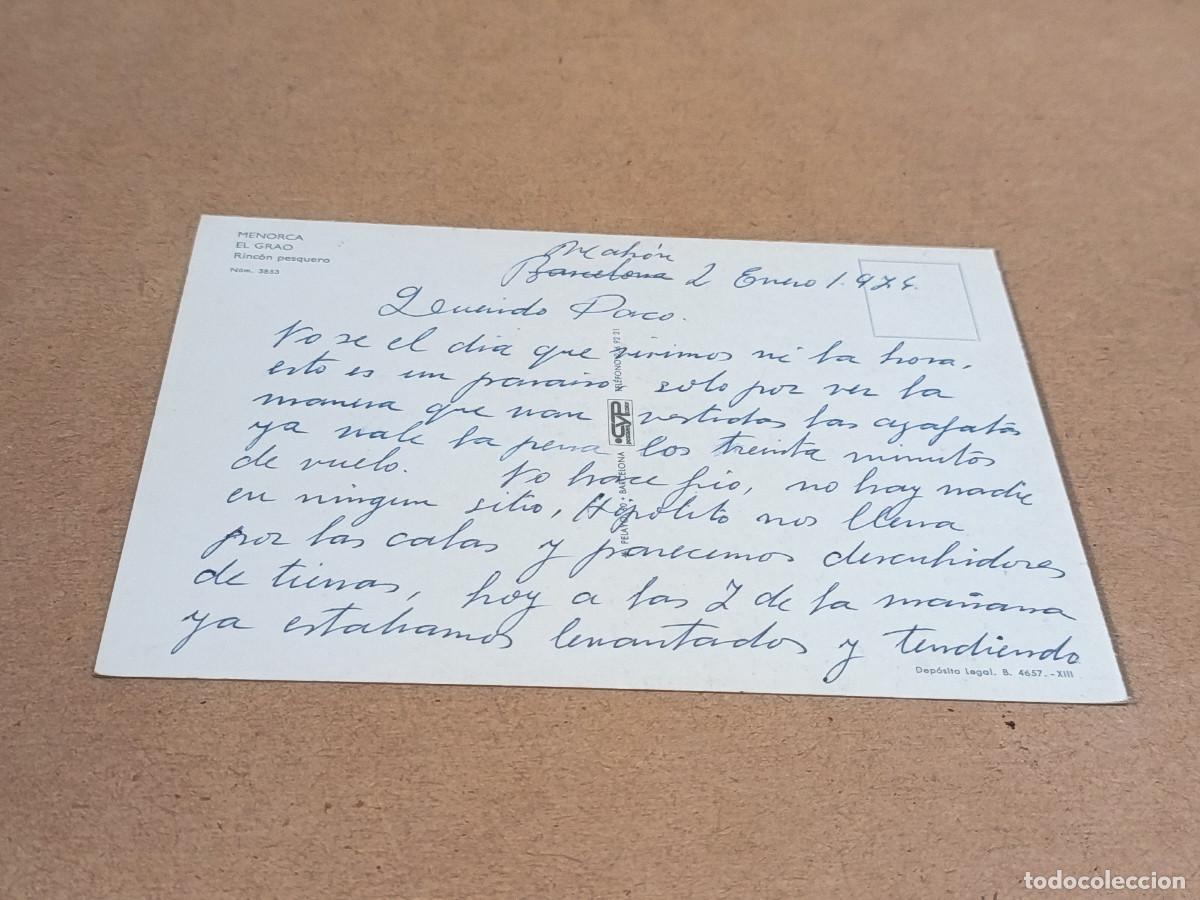 MENORCA
EL GRAO
Rincón pesquero
Núm. 3853
Mahón
Barcelona 2 Enero 1.974.
Querido Paco.
No se el dia que vivimos ni la hora,
esto es un paraiso solo por ver la
manera que van vestidas las azafatas
ya vale la pena los treinta minutos
de vuelo. No hace frio, no hay nadie
en ningun sitio, Hipolito nos lleva
por las calas y parecemos descubridores
de tierras, hoy a las 7 de la mañana
ya estabamos levantados y tendiendo
PELAYO BARCELONA
CYP
TELÉFONO 92 21
Depósito Legal. B. 4657.-XIII
todocoleccion